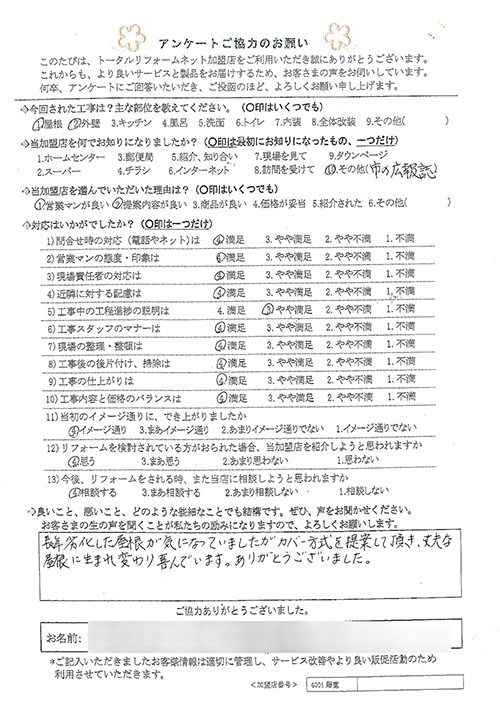 アンケートご協力のお願い
このたびは、トータルリフォームネット加盟店をご利用いただき誠にありがとうございます。
これからも、より良いサービスと製品をお届けするため、お客さまの声をお伺いしています。
何卒、アンケートにご回答いただいたき、ご投函のほど、よろしくお願い申し上げます。
◇今回された工事は?主な部位を教えてください。(〇印はいくつでも)
①屋根 ②外壁 3.キッチン 4.風呂 5.洗面 6.トイレ 7.内装 8.全体改装 9.その他( )
◇当加盟店を何でお知りになりましたか?(〇印は最初にお知りになったもの、一つだけ)
1.ホームセンター 3.郵便局 5.紹介、知り合い 7.現場を見て 9.タウンページ
2.スーパー 4.チラシ 6.インターネット 8.訪問を受けて ⑩その他(市の広報誌)
◇当加盟店を選んでいただいた理由は?(〇印はいくつでも)
①営業マンが良い ②提案内容が良い 3.商品が良い 4.価格が妥当 5.紹介された 6.その他( )
◇対応はいかがでしたか?(〇印は一つだけ)
1)問合せ時の対応(電話やネット)は ④満足 3.やや満足 2.やや不満 1.不満
2)営業マンの態度・印象は ④満足 3.やや満足 2.やや不満 1.不満
3)現場責任者の対応は ④満足 3.やや満足 2.やや不満 1.不満
4)近隣に対する配慮は ④満足 3.やや満足 2.やや不満 1.不満
5)工事中の工程進捗の説明は 4.満足 ③やや満足 2.やや不満 1.不満
6)工事スタッフのマナーは ④満足 3.やや満足 2.やや不満 1.不満
7)現場の整理・整頓は ④満足 3.やや満足 2.やや不満 1.不満
8)工事後の後片付け、掃除は ④満足 3.やや満足 2.やや不満 1.不満
9)工事の仕上がりは ④満足 3.やや満足 2.やや不満 1.不満
10)工事内容と価格のバランスは ④満足 3.やや満足 2.やや不満 1.不満
11)当初のイメージ通りに、でき上がりましたか
④イメージ通り 3.まあイメージ通り 2.あまりイメージ通りでない 1.イメージ通りでない
12)リフォームを検討されている方がおられた場合、当加盟店を紹介しようと思われますか
④思う 3.まあ思う 2.あまり思わない 1.思わない
13)今後、リフォームをされる時、また当店に相談しようと思われますか
④相談する 3.まあ相談する 2.あまり相談しない 1.相談しない
◇良いこと、悪いこと、どのような些細なことでも結構です。ぜひ、声をお聞かせください。
お客さまの生の声を聞くことが私たちの励みになりますので、よろしくお願いします。
長年劣化した屋根が気になっていましたがカバー方式を提案して頂き、丈夫な
屋根に生まれ変わり喜んでいます。ありがとうございました。
ご協力ありがとうございました。
お名前:
*ご記入いただきましたお客様情報は適切に管理し、サービス改善やより良い販促活動のため
利用させていただきます。
<加盟店番号> 6001